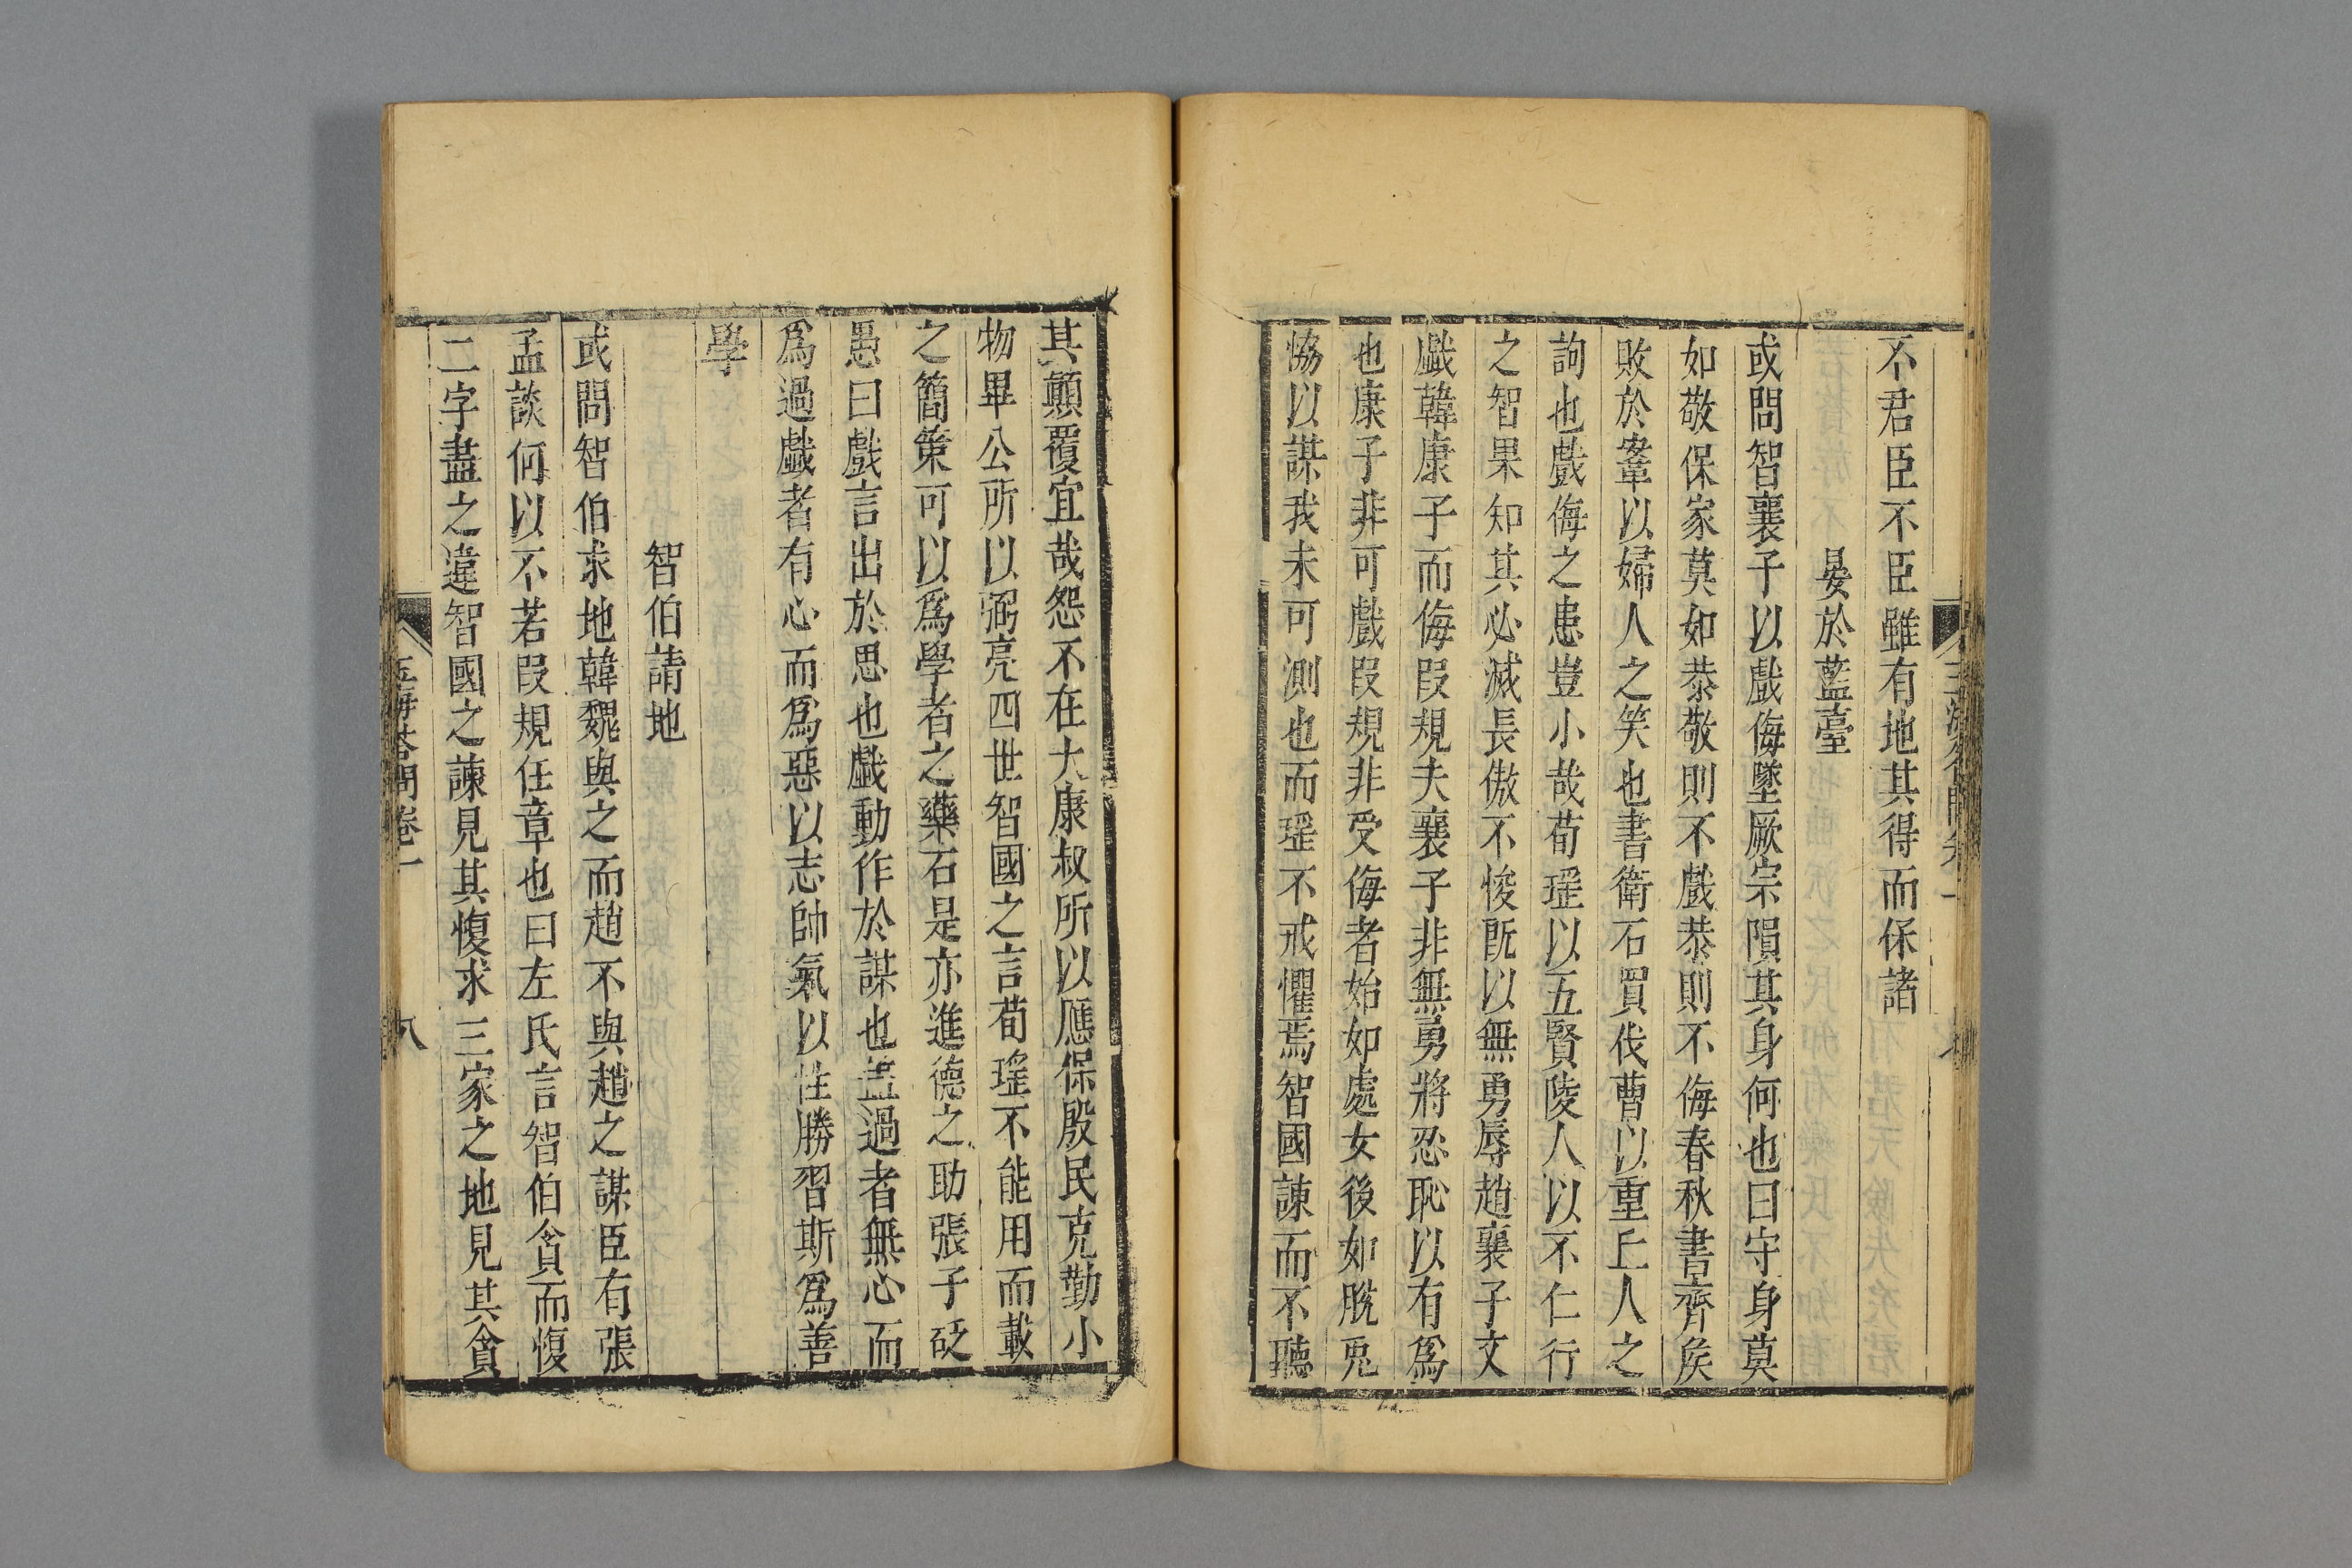 不君臣不臣雖有地其得而保諸
晏於藍臺
或問智襄子以戲侮墜厥宗隕其身何也曰守身莫
如敬保家莫如恭敬則不戲恭則不侮春秋書齊矦
敗於鞌以婦人之笑也書衛石買伐曹以重丘人之
詢也戲侮之患豈小哉荀瑶以五賢陵人以不仁行
之智果知其必滅長傲不悛旣以無勇辱趙襄子文
戲韓康子而侮叚規夫襄子非無勇將忍恥以有爲
也康子非可戲叚規非受侮者始如處女後如脫兎
恊以謀我未可測也而瑶不戒懼焉智國諫而不聽
其顛覆宜哉怨不在大康叔所以應保殷民克勤小
物畢公所以弼亮四世智國之言荀瑤不能用而載
之簡策可以爲學者之藥石是亦進德之助張子砭
愚曰戲言出於思也戲動作於謀也盖過者無心而
爲過戲者有心而爲惡以志帥氣以性勝習斯爲善
學
智伯請地
或問智伯求地韓魏與之而趙不與趙之謀臣有張
孟談何以不若叚規任章也曰左氏言智伯貪而愎
二字盡之違智國之諫見其愎求三家之地見其貪
玉海荅問卷一 八